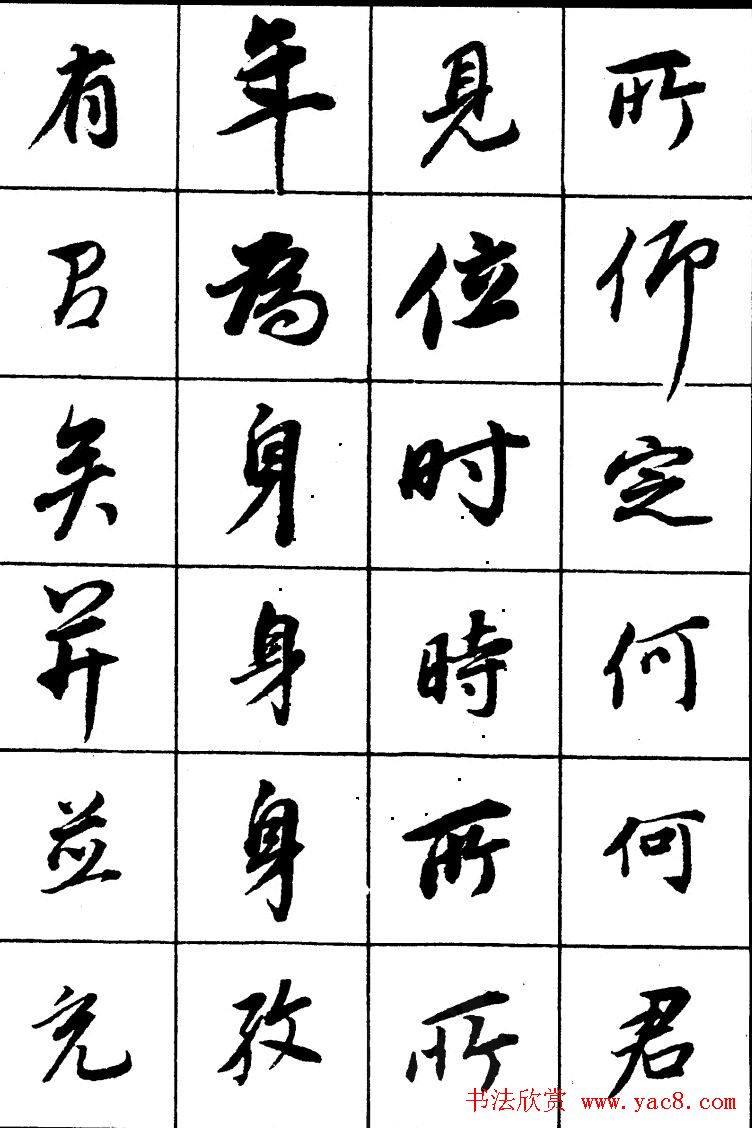 所仰定何何君
見位时時所所
年為身身身孜
有召矣并並充
书法欣赏 www.yac8.com